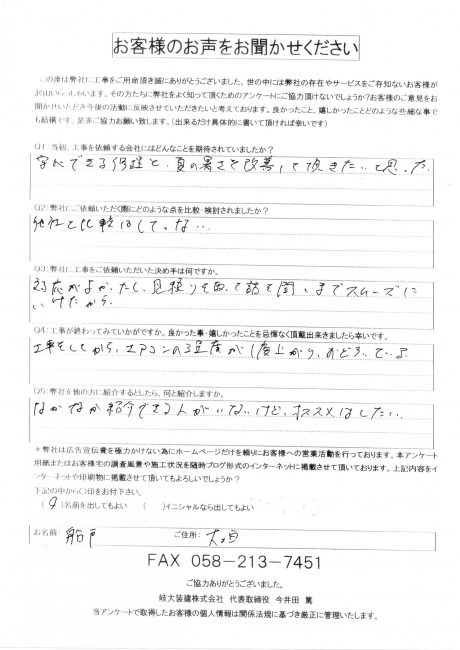 お客様のお声をお聞かせください
この度は弊社に工事をご用命頂き誠にありがとうございました。世の中には弊社の存在やサービスをご存知ないお客様が
沢山いらっしゃいます。その方たちに弊社をよく知って頂くためのアンケートにご協力頂けないでしょうか?お客様のご意見をお
聞かせいただき今後の活動に反映させていただきたいと考えております。良かったこと、嬉しかったことどのような些細な事で
も結構です。是非ご協力お願い致します。（出来るだけ具体的に書いて頂ければ幸いです）
Q1:当初、工事を依頼する会社にはどんなことを期待されていましたか?
安心できる修理と、夏の暑さを改善して頂きたいと思った
Q2:弊社にご依頼いただく際にどのような点を比較・検討されましたか?
他社と比較はしていない
Q3:弊社に工事をご依頼いただいた決め手は何ですか。
対応がよかったし、見積りを取って話を聞くまでスムーズに
いけたから
Q4:工事が終わってみていかがですか。良かった事・嬉しかったことを忌憚なく頂戴出来ましたら幸いです。
工事をしてから、エアコンの温度が1度上がり、おどろいている
Q5:弊社を他の方に紹介するとしたら、何と紹介しますか。
なかなか紹介できる人がいないけど、オススメはしたい
＊弊社は広告宣伝費を極力かけない為にホームページだけを頼りにお客様への営業活動を行っております。本アンケート
用紙またはお客様宅の調査風景や施工状況を随時ブログ形式のインターネットに掲載させて頂いております。上記内容をイ
ンターネットや印刷物に掲載させて頂いてもよろしいでしょうか?
下記の中から〇印をお付下さい。
（ ）名前を出してもよい （ ）イニシャルなら出してもよい
お名前: 船戸 ご住所: 大垣
FAX 058-213-7451
ご協力ありがとうございました。
岐大装建株式会社 代表取締役 今井田 篤
当アンケートで取得したお客様の個人情報は関係法規に基づき厳正に管理いたします。